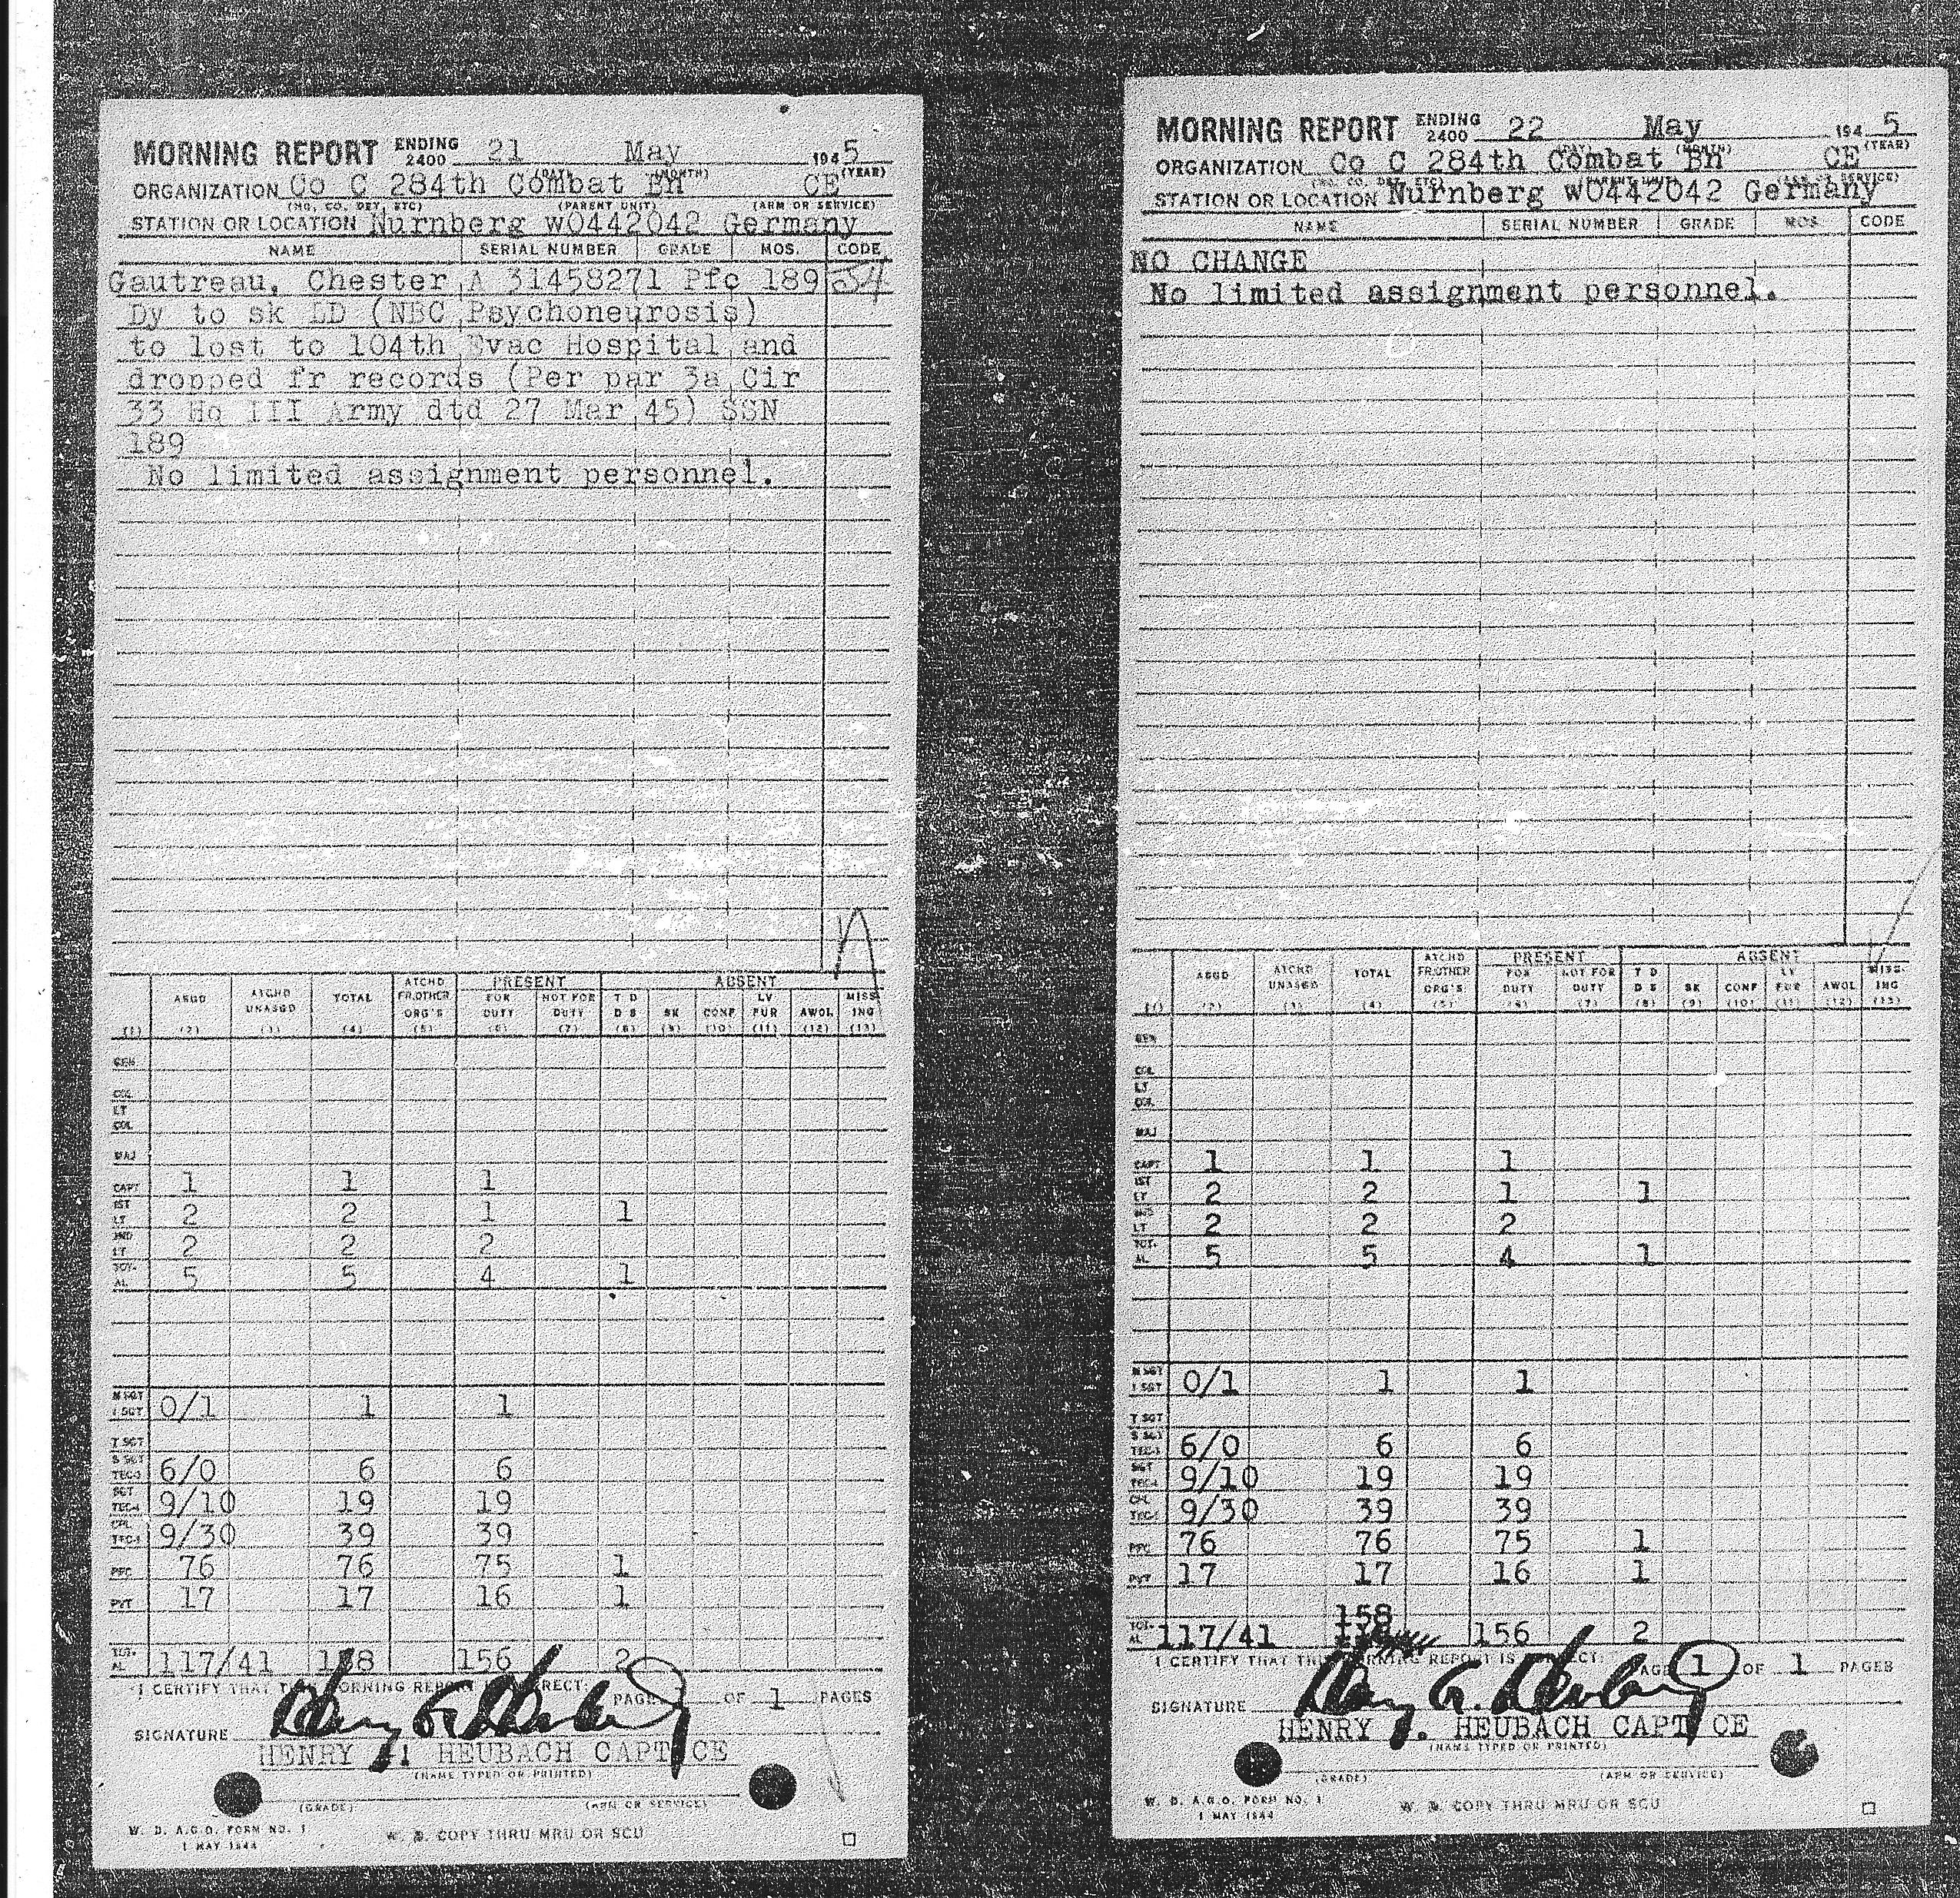 MORNING REPORT ENDING 2400 21 May 1945
(DAY) (MONTH) (YEAR)
ORGANIZATION Co C 284th Combat Bn CE
(NO. CO. DET. ETC) (PARENT UNIT) (ARM OR SERVICE)
STATION OR LOCATION Nurnberg wO442042 Germany
NAME SERIAL NUMBER GRADE MOS. CODE
Gautreau, Chester A 31458271 Pfc 189 54
Dy to sk LD (NBC Psychoneurosis)
to lost to 104th Evac Hospital and
dropped fr records (Per par 3a Cir
33 Hq III Army dtd 27 Mar 45) SSN
189
No limited assignment personnel.
PRESENT ABSENT
ASGD ATCHD UNASGD TOTAL ATCHD FR.OTHER ORG'S FOR DUTY NOT FOR DUTY T D D S SK CONF LV FUR AWOL MISS-ING
(1) (2) (3) (4) (5) (6) (7) (8) (9) (10) (11) (12) (13)
GEN
COL
LT COL
MAJ
CAPT 1 1 1
1ST LT 2 2 1 1
2ND LT 2 2 2
TOT-AL 5 5 4 1
M SGT 1 SGT 0/1 1 1
T SGT
S SGT TEC-3 6/0 6 6
SGT TEC-4 9/10 19 19
CPL TEC-5 9/30 39 39
PFC 76 76 75 1
PVT 17 17 16 1
TOT-AL 117/41 158 156 2
I CERTIFY THAT THIS MORNING REPORT IS CORRECT: PAGE OF 1 PAGES
SIGNATURE
HENRY HEUBACH CAPT CE
(NAME TYPED OR PRINTED)
(GRADE) (ARM OR SERVICE)
W. D. A.G.O. FORM NO. 1
1 MAY 1944
W. D. COPY THRU MRU OR SCU
MORNING REPORT ENDING 2400 22 May 1945
(DAY) (MONTH) (YEAR)
ORGANIZATION Co C 284th Combat Bn CE
(NO. CO. DET. ETC) (PARENT UNIT) (ARM OR SERVICE)
STATION OR LOCATION Nurnberg wO442042 Germany
NAME SERIAL NUMBER GRADE MOS. CODE
NO CHANGE
No limited assignment personnel.
PRESENT ABSENT
ASGD ATCHD UNASGD TOTAL ATCHD FR.OTHER ORG'S FOR DUTY NOT FOR DUTY T D D S SK CONF LV FUR AWOL MISS-ING
(1) (2) (3) (4) (5) (6) (7) (8) (9) (10) (11) (12) (13)
GEN
COL
LT COL
MAJ
CAPT 1 1 1
1ST LT 2 2 1 1
2ND LT 2 2 2
TOT-AL 5 5 4 1
M SGT 1 SGT 0/1 1 1
T SGT
S SGT TEC-3 6/0 6 6
SGT TEC-4 9/10 19 19
CPL TEC-5 9/30 39 39
PFC 76 76 75 1
PVT 17 17 16 1
158
TOT-AL 117/41 156 2
I CERTIFY THAT THIS MORNING REPORT IS CORRECT: PAGE 1 OF 1 PAGES
SIGNATURE
HENRY . HEUBACH CAPT CE
(NAME TYPED OR PRINTED)
(GRADE) (ARM OR SERVICE)
W. D. A.G.O. FORM NO. 1
1 MAY 1944
W. D. COPY THRU MRU OR SCU